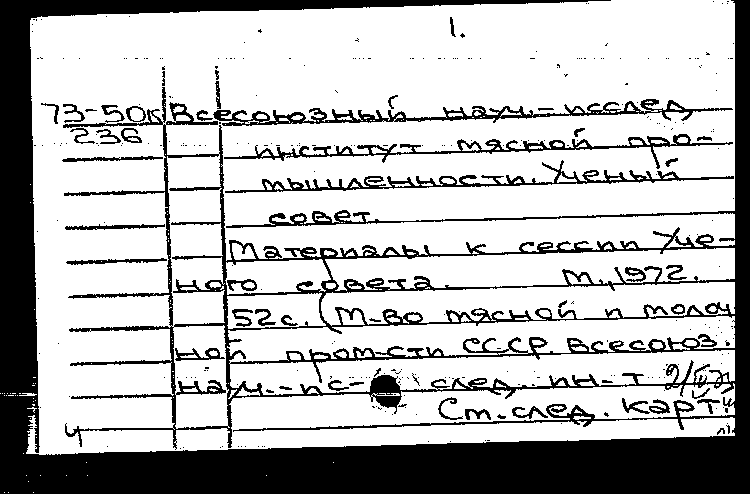 1.
73-50к Всесоюзный науч.-исслед
236
институт мясной про-
мышленности. Ученый
совет.
Материалы к сессии Уче-
ного совета. М., 1972.
52с. (М-во мясной и молоч
ной пром-сти СССР. Всесоюз.
науч.-ис- след. ин-т
Ст. след. карт.
ч